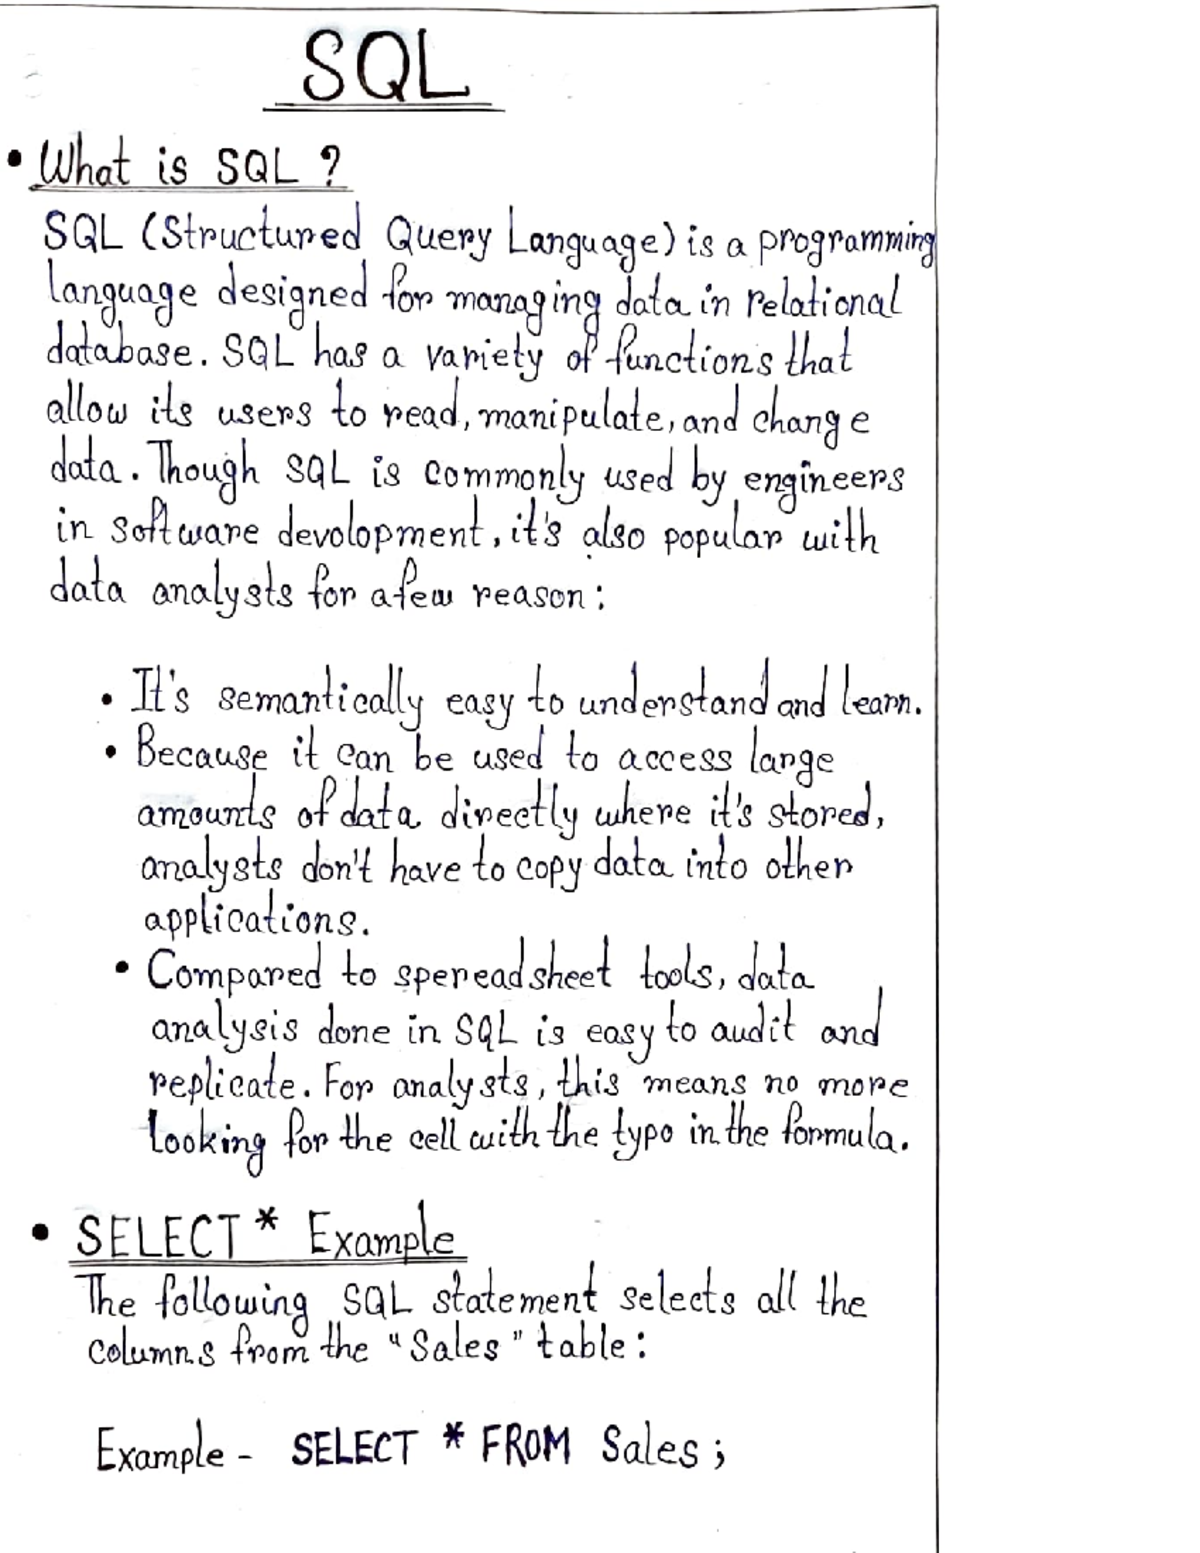 SQL
• What is SQL ?
SQL (Structured Query Language) is a programming
language designed for managing data in relational
database. SQL has a variety of functions that
allow its users to read, manipulate, and change
data. Though SQL is commonly used by engineers
in software devolopment, it's also popular with
data analysts for a few reason:
• It's semantically easy to understand and learn.
• Because it can be used to access large
amounts of data directly where it's stored,
analysts don't have to copy data into other
applications.
• Compared to spereadsheet tools, data
analysis done in SQL is easy to audit and
replicate. For analysts, this means no more
looking for the cell with the typo in the formula.
• SELECT * Example
The following SQL statement selects all the
columns from the "Sales" table:
Example - SELECT * FROM Sales;